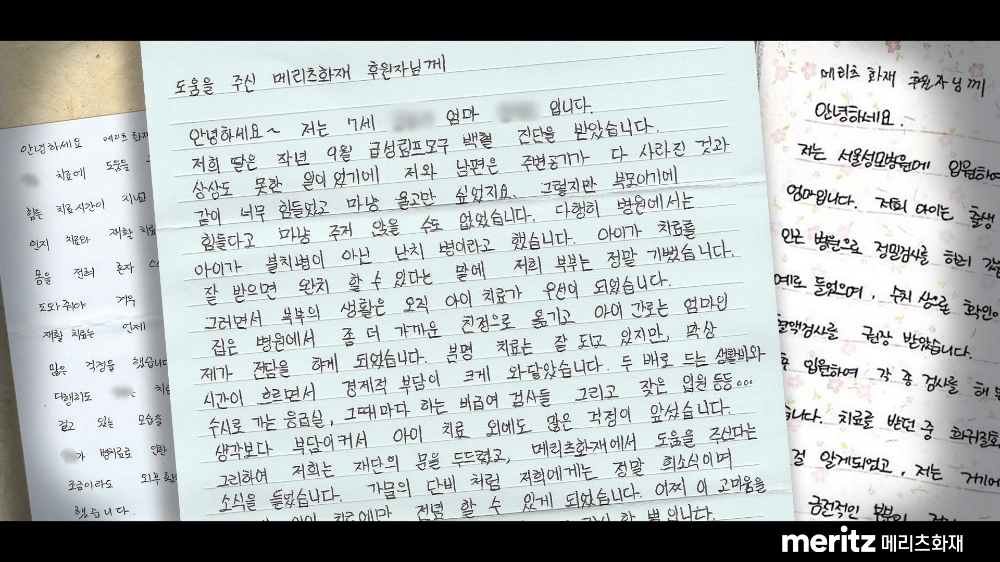 안녕하세요 메리츠 화재
치료에 도움을
힘든 치료시간이 지나고
인지 치료와 재활 치료
몸을 전혀 혼자
도와줘야 겨우
재활 치료는 언제
많은 걱정을 했습니다
다행히도
걸고 있는 모습을
가 병원료로 인한
조금이라도
했습니다.
도움을 주신 메리츠화재 후원자님께
안녕하세요~ 저는 7세 엄마 입니다.
저희 딸은 작년 9월 급성림프모구 백혈 진단을 받았습니다.
상상도 못한 일이었기에 저와 남편은 주변공기가 다 사라진 것과
같이 너무 힘들었고 마냥 울고만 싶었지요. 그렇지만 부모이기에
힘들다고 마냥 주저 앉을 수도 없었습니다. 다행히 병원에서는
아이가 불치병이 아닌 난치 병이라고 했습니다. 아이가 치료를
잘 받으면 완치 할 수 있다는 말에 저희 부부는 정말 기뻤습니다.
그러면서 부부의 생활은 오직 아이 치료가 우선이 되었습니다.
집은 병원에서 좀 더 가까운 친정으로 옮기고 아이 간호는 엄마인
제가 전담을 하게 되었습니다. 분명 치료는 잘 되고 있지만, 막상
시간이 흐르면서 경제적 부담이 크게 와닿았습니다. 두 배로 드는 생활비와
수시로 가는 응급실, 그때마다 하는 비급여 검사들 그리고 잦은 입원 등등...
생각보다 부담이커서 아이 치료 외에도 많은 걱정이 앞섰습니다.
그리하여 저희는 재단의 몸을 두드렸고, 메리츠화재에서 도움을 주신다는
소식을 들었습니다. 가뭄의 단비 처럼 저희에게는 정말 희소식이며
아이 치료에만 전념 할 수 있게 되었습니다. 어찌 이 고마움을
메리츠 화재 후원자님께
안녕하세요.
저는 서울성모병원에 입원하여
엄마입니다. 저희 아이는 출생
인근 병원으로 정밀검사를 하러
들었으며, 수치 상승을 확인
혈액검사를 권장 받았습니다.
입원하여 각 종 검사를 해
습니다. 치료를 받던 중 희귀질환
걸 알게되었고, 저는 거기에
금전적인 부분이
meritz 메리츠화재